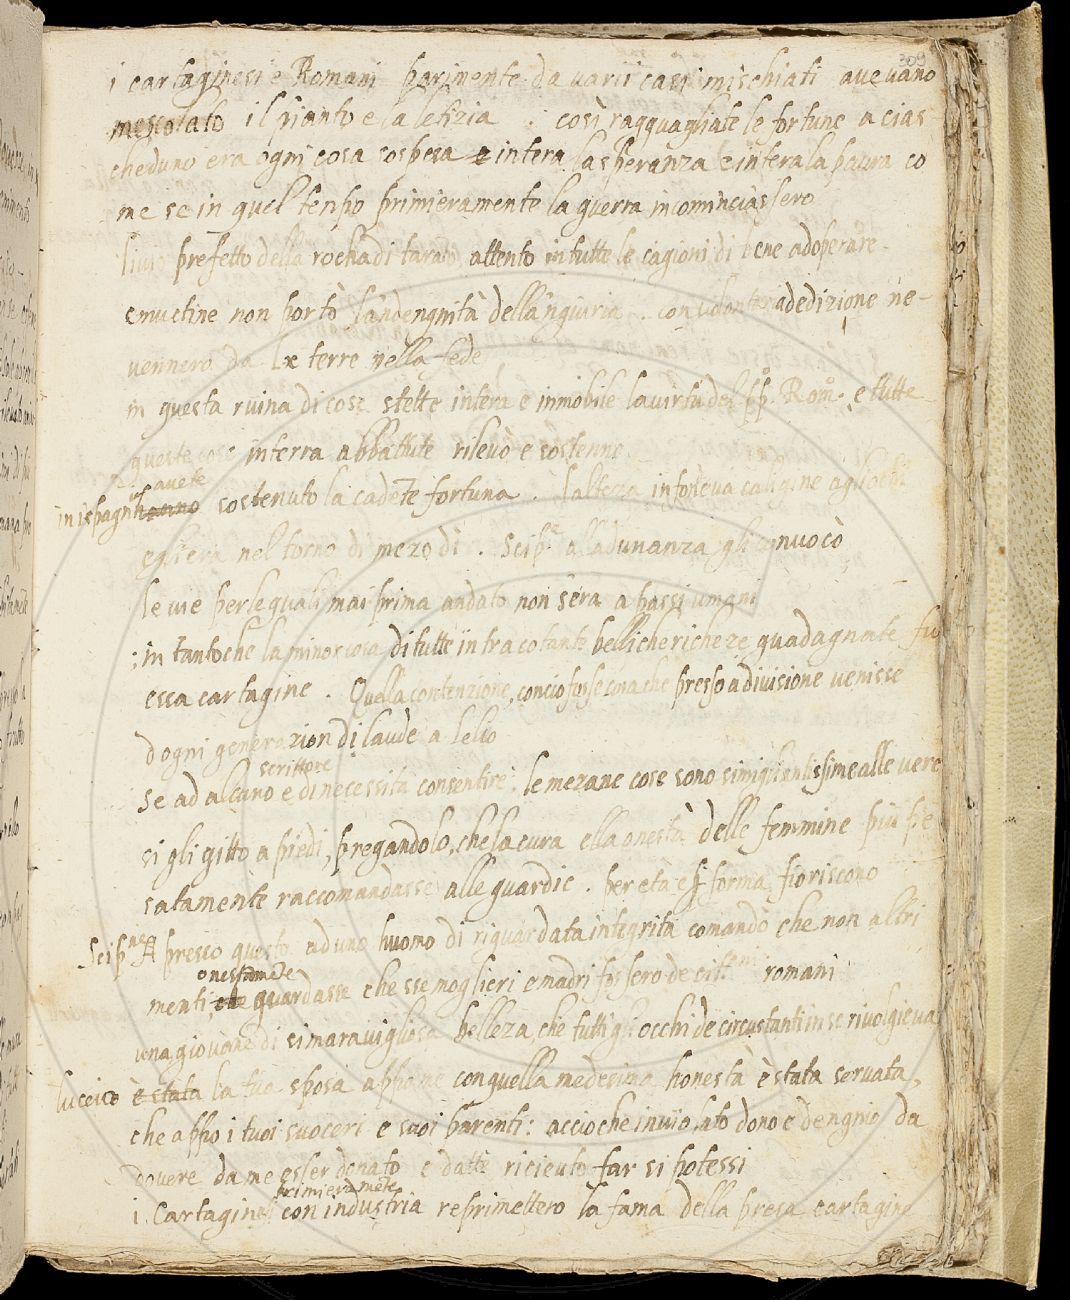 309
i cartaginesi e Romani parimente da varii casi mischiati avevano
mescolato il pianto e la letizia . così raqquagliate le fortune a cias
cheduno era ogni cosa sospesa e intera la speranza e intera la paura co
me se in quel tenpo primieramente la guerra incominciassero
livio prefetto della rocha di tarāto attento in tutte le cagioni di bene adoperare
non portò l'andengnità dell'angiuria . con volontaria dedizione ne
vennero da Lx terre nella fede
in questa ruina di cose stette intera e inmobile la virtù del pp.º Rom.º e tutte
queste cose interra abbattute rilevò e sostenne
avete
in ispagnia hanno sostenuto la cadēte fortuna . l'altezza caligine agli ochi
egli era nel torno di mezo dì . Scip.e alla dunanza gli convocò
le vie per le quali mai prima andato non s'era a passi umani
; in tanto che la minor cosa di tutte intra cotante belliche richeze guadagnate fu
essa cartagine . Quella contenzione, conciofosse cosa che presso a divisione venisse
d ogni generazion di laude a lelio
scrittore
se ad alcuno è di necessità consentire : le mezane cose sono simigliantissime alle vere
si gli gittò a piedi, pregandolo, che la cura ella onestà delle femmine più pie
satamente raccomandasse alle guardie . per età e p forma fioriscono
Scip.ne Appresso questo ad uno huomo di riguardata integrità comandò che non altri
onestamēte
menti che guardasse che sse moglieri e madri fossero de citt.ni romani
una giovane di sì maravigliosa belleza, che tutti gli occhi de circustanti in se rivolgieva
luceio è stata la tua sposa appo me con quella medesima honestà è stata servata,
che appo i tuoi suoceri e suoi parenti : accioche inviolato dono e dengnio da
dovere da me esser donato e datte ricieuto far si potessi
primieramēte
i Cartaginesi con industria reprimettero la fama della presa cartagine